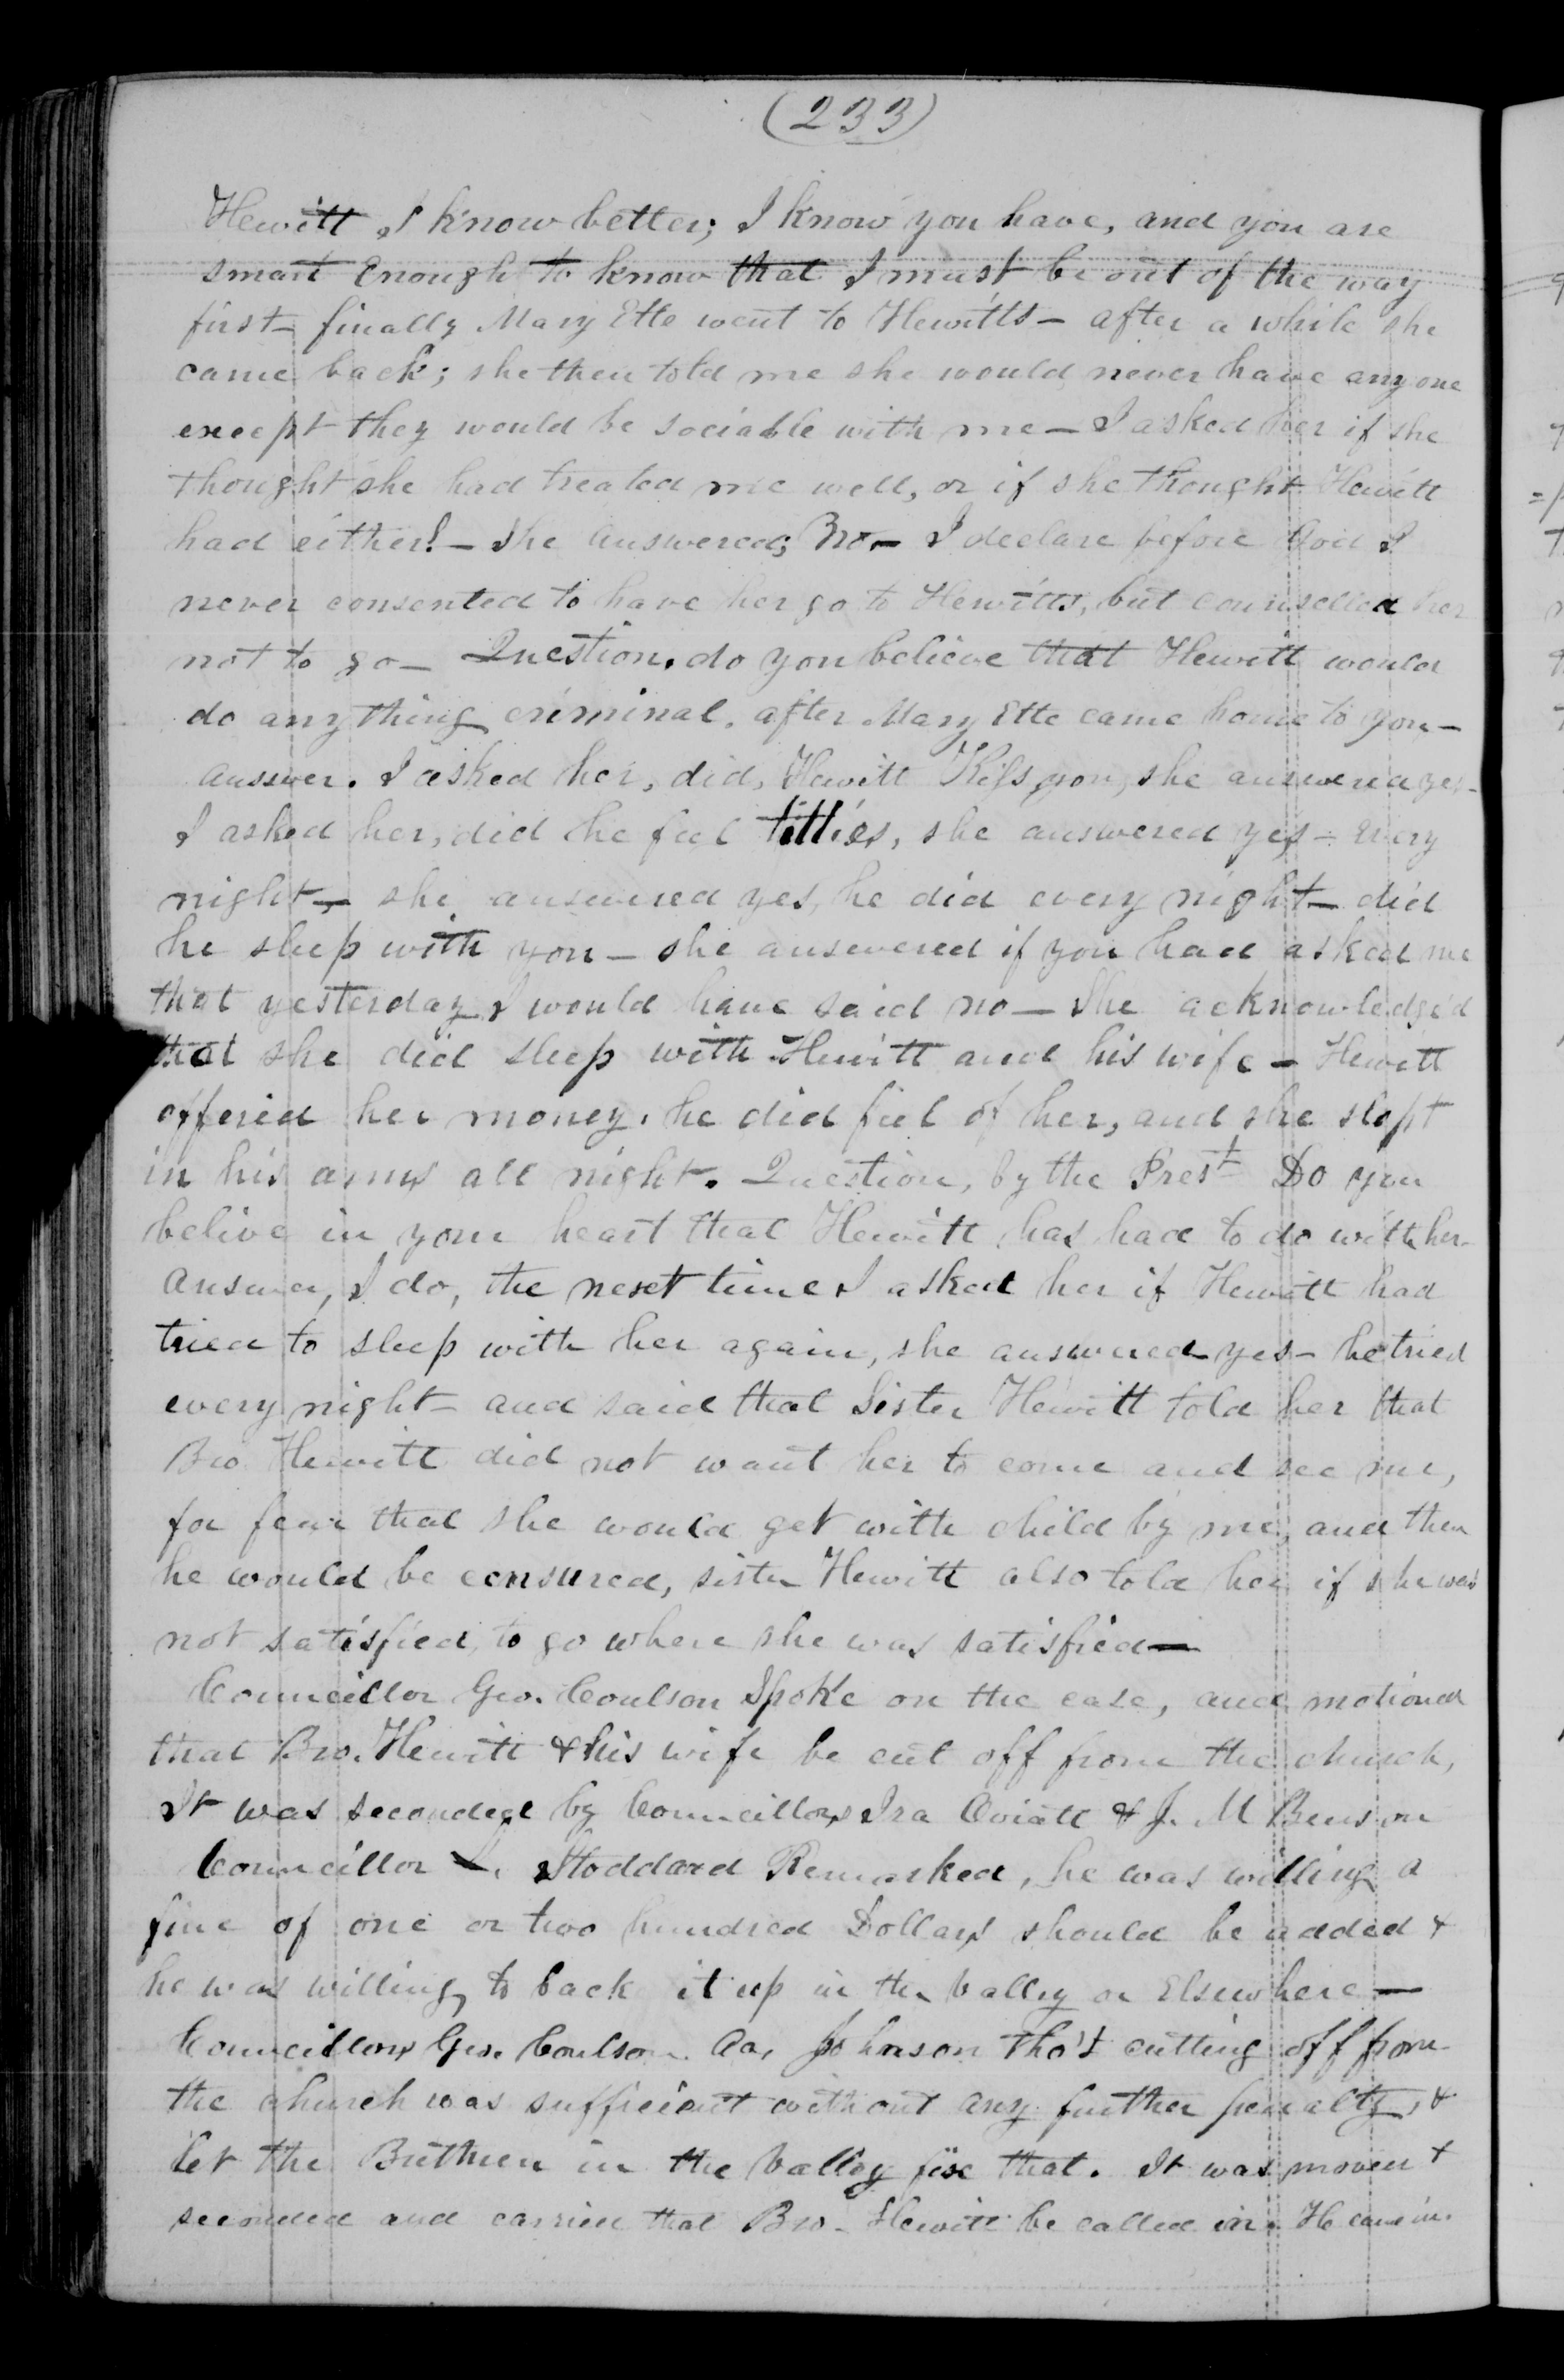 (233)
Hewitt I know better; I know you have, and you are
smart Enough to know that I must be out of the way
first_ finally Mary Ette went to Hewitts_ after a while she
came back; she then told me she would never have any one
except they would be sociable with me_ I asked her if she
thought she had treated me well, or if she thought Hewitt
had either!_ She answered; No_ I declare before God I
never consented to have her go to Hewitts, but counselled her
not to go_ Question. do you believe that Hewitt would
do any thing criminal. after Mary Ette came home to you_
answer. I asked her, did, Hewitt Kiss you, she answered yes_
I asked her, did he feel titties, she answered yes_ Every
night_ she answered yes, he did every night_ did
he sleep with you_ she answered if you had asked me
that yesterday I would have said no_ She acknowledg'd
that she did sleep with Hewitt and his wife_ Hewitt
offered her money. he did feel of her, and she slept
in his arms all night. Question, by the Prest Do you
belive in your heart that Hewitt has had to do with her_
answer, I do, the next time I asked her if Hewitt had
tried to sleep with her again, she answered yes_ he tried
every night_ and said that Sister Hewitt told her that
Bro Hewitt did not want her to come and see me,
for fear that she would get with child by me, and then
he would be censured, sister Hewitt also told her if she was
not satisfied, to go where she was satisfied_
Councillor Geo. Coulson Spoke on the case, and motioned
that Bro. Hewitt & his wife be cut off from the church,
It was seconded by Councillors Ira Oviatt & J. M Benson
Councillor L. Stoddard Remarked, he was willing a
fine of one or two hundred Dollars should be added &
he was willing to back it up in the Valley or Elsewhere_
Councillors Geo. Coulson Aa, Johnson tho't cutting off from
the church was sufficient without any further penalty, &
let the Brethren in the Valley fix that. It was moved &
seconded and carried that Bro. Hewitt be called in. He came in.